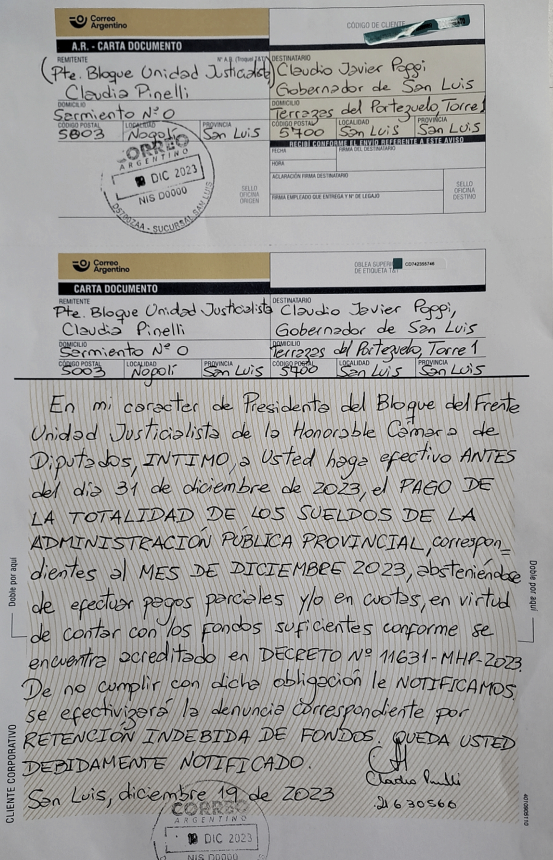 Correo
Argentino
CÓDIGO DE CLIENTE
A.R. - CARTA DOCUMENTO
REMITENTE
DESTINATARIO
(Pte. Bloque Unidad Justicialista)
Claudio Javier Poggi
Claudia Pinelli
Gobernador de San Luis
DOMICILIO
DOMICILIO
Sarmiento Nº 0
Terrazas del Portezuelo Torre 1
CÓDIGO POSTAL LOCALIDAD PROVINCIA
CÓDIGO POSTAL LOCALIDAD PROVINCIA
5003 Nogolí San Luis
5700 San Luis San Luis
RECIBÍ CONFORME EL ENVÍO REFERENTE A ESTE AVISO
FECHA
FIRMA DEL DESTINATARIO
HORA
ACLARACIÓN FIRMA DESTINATARIO
FIRMA EMPLEADO QUE ENTREGA Y Nº DE LEGAJO
SELLO
OFICINA
ORIGEN
SELLO
OFICINA
DESTINO
CORREO
ARGENTINO
DIC 2023
NIS D0000
SUCURSAL SAN LUIS
Correo
Argentino
CARTA DOCUMENTO
REMITENTE
DESTINATARIO
Pte. Bloque Unidad Justicialista
Claudio Javier Poggi,
Claudia Pinelli
Gobernador de San Luis
DOMICILIO
DOMICILIO
Sarmiento Nº 0
Terrazas del Portezuelo, Torre 1
CÓDIGO POSTAL LOCALIDAD PROVINCIA
CÓDIGO POSTAL LOCALIDAD PROVINCIA
5003 Nogolí San Luis
5700 San Luis San Luis
En mi caracter de Presidenta del Bloque del Frente
Unidad Justicialista de la Honorable Cámara de
Diputados, INTIMO, a Usted haga efectivo ANTES
del día 31 de diciembre de 2023, el PAGO DE
LA TOTALIDAD DE LOS SUELDOS DE LA
ADMINISTRACIÓN PÚBLICA PROVINCIAL, correspon=
dientes al MES DE DICIEMBRE 2023, absteniéndose
de efectuar pagos parciales y/o en cuotas, en virtud
de contar con los fondos suficientes conforme se
encuentra acreditado en DECRETO Nº 11631-MHP-2023.
De no cumplir con dicha obligación le NOTIFICAMOS
se efectivizará la denuncia correspondiente por
RETENCIÓN INDEBIDA DE FONDOS. QUEDA USTED
DEBIDAMENTE NOTIFICADO.
San Luis, diciembre 19 de 2023
21630560
CORREO
ARGENTINO
DIC 2023
NIS D0000
Doble por aquí
Doble por aquí
CLIENTE CORPORATIVO